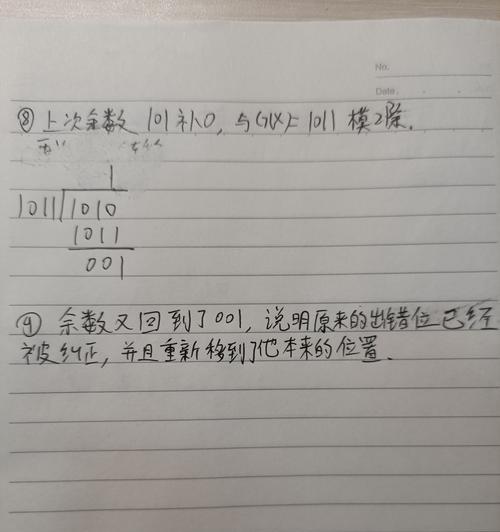 No.
Date.
⑧ 上次余数 101 补0, 与G(X)=1011 模2除.
1
1011 1010
1011
001
⑨ 余数又回到了001, 说明原来的出错位已经
被纠正, 并且重新移到了他本来的位置.